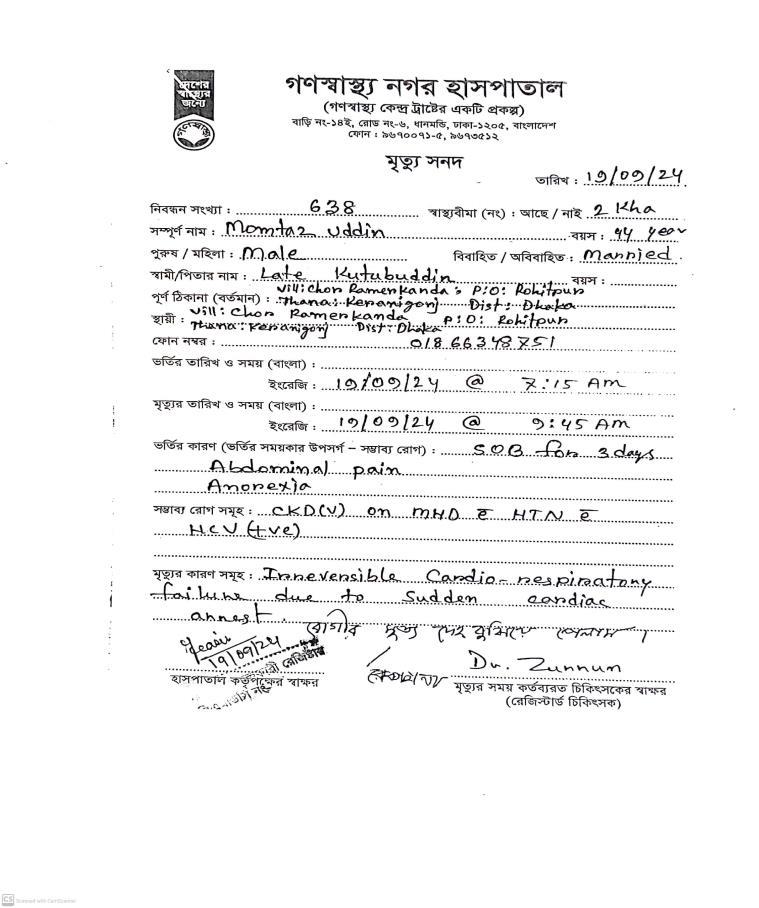 দেশের
স্বাস্থ্যের
জন্যে
গণস্বাস্থ্য
গণস্বাস্থ্য নগর হাসপাতাল
(গণস্বাস্থ্য কেন্দ্র ট্রাষ্টের একটি প্রকল্প)
বাড়ি নং-১৪ই, রোড নং-৬, ধানমন্ডি, ঢাকা-১২০৫, বাংলাদেশ
ফোন : ৯৬৭০০৭১-৫, ৯৬৭৩৫১২
মৃত্যু সনদ
তারিখ : 19/09/24
নিবন্ধন সংখ্যা : 638 স্বাস্থ্যবীমা (নং) : আছে / নাই 2 Kha
সম্পূর্ণ নাম : Momtaz Uddin বয়স : 44 year
পুরুষ / মহিলা : Male বিবাহিত / অবিবাহিত : Married.
স্বামী/পিতার নাম : Late Kutubuddin বয়স :
Vill: Chor Ramerkanda, P:O: Rohitpur
পূর্ণ ঠিকানা (বর্তমান) : Thana: Keranigonj Dist: Dhaka
Vill: Chor Ramerkanda P:O: Rohitpur
স্থায়ী : Thana: Keranigonj Dist: Dhaka
ফোন নম্বর : 01866348751
ভর্তির তারিখ ও সময় (বাংলা) :
ইংরেজি : 19/09/24 @ 7:15 AM
মৃত্যুর তারিখ ও সময় (বাংলা) :
ইংরেজি : 19/09/24 @ 9:45 AM
ভর্তির কারণ (ভর্তির সময়কার উপসর্গ – সম্ভাব্য রোগ) : SOB for 3 days
Abdominal pain
Anorexia
সম্ভাব্য রোগ সমূহ : CKD(V) on MHD c̄ HTN c̄
HCV (+ve)
মৃত্যুর কারণ সমূহ : Irreversible Cardio-respiratory
failure due to Sudden cardiac
arrest.
রোগীর মৃত্যু দেহ বুঝিয়ে পেলাম।
19/09/24
Dr. Zunnun
হাসপাতাল কর্তৃপক্ষের স্বাক্ষর
মৃত্যুর সময় কর্তব্যরত চিকিৎসকের স্বাক্ষর
(রেজিস্টার্ড চিকিৎসক)
CS Scanned with CamScanner